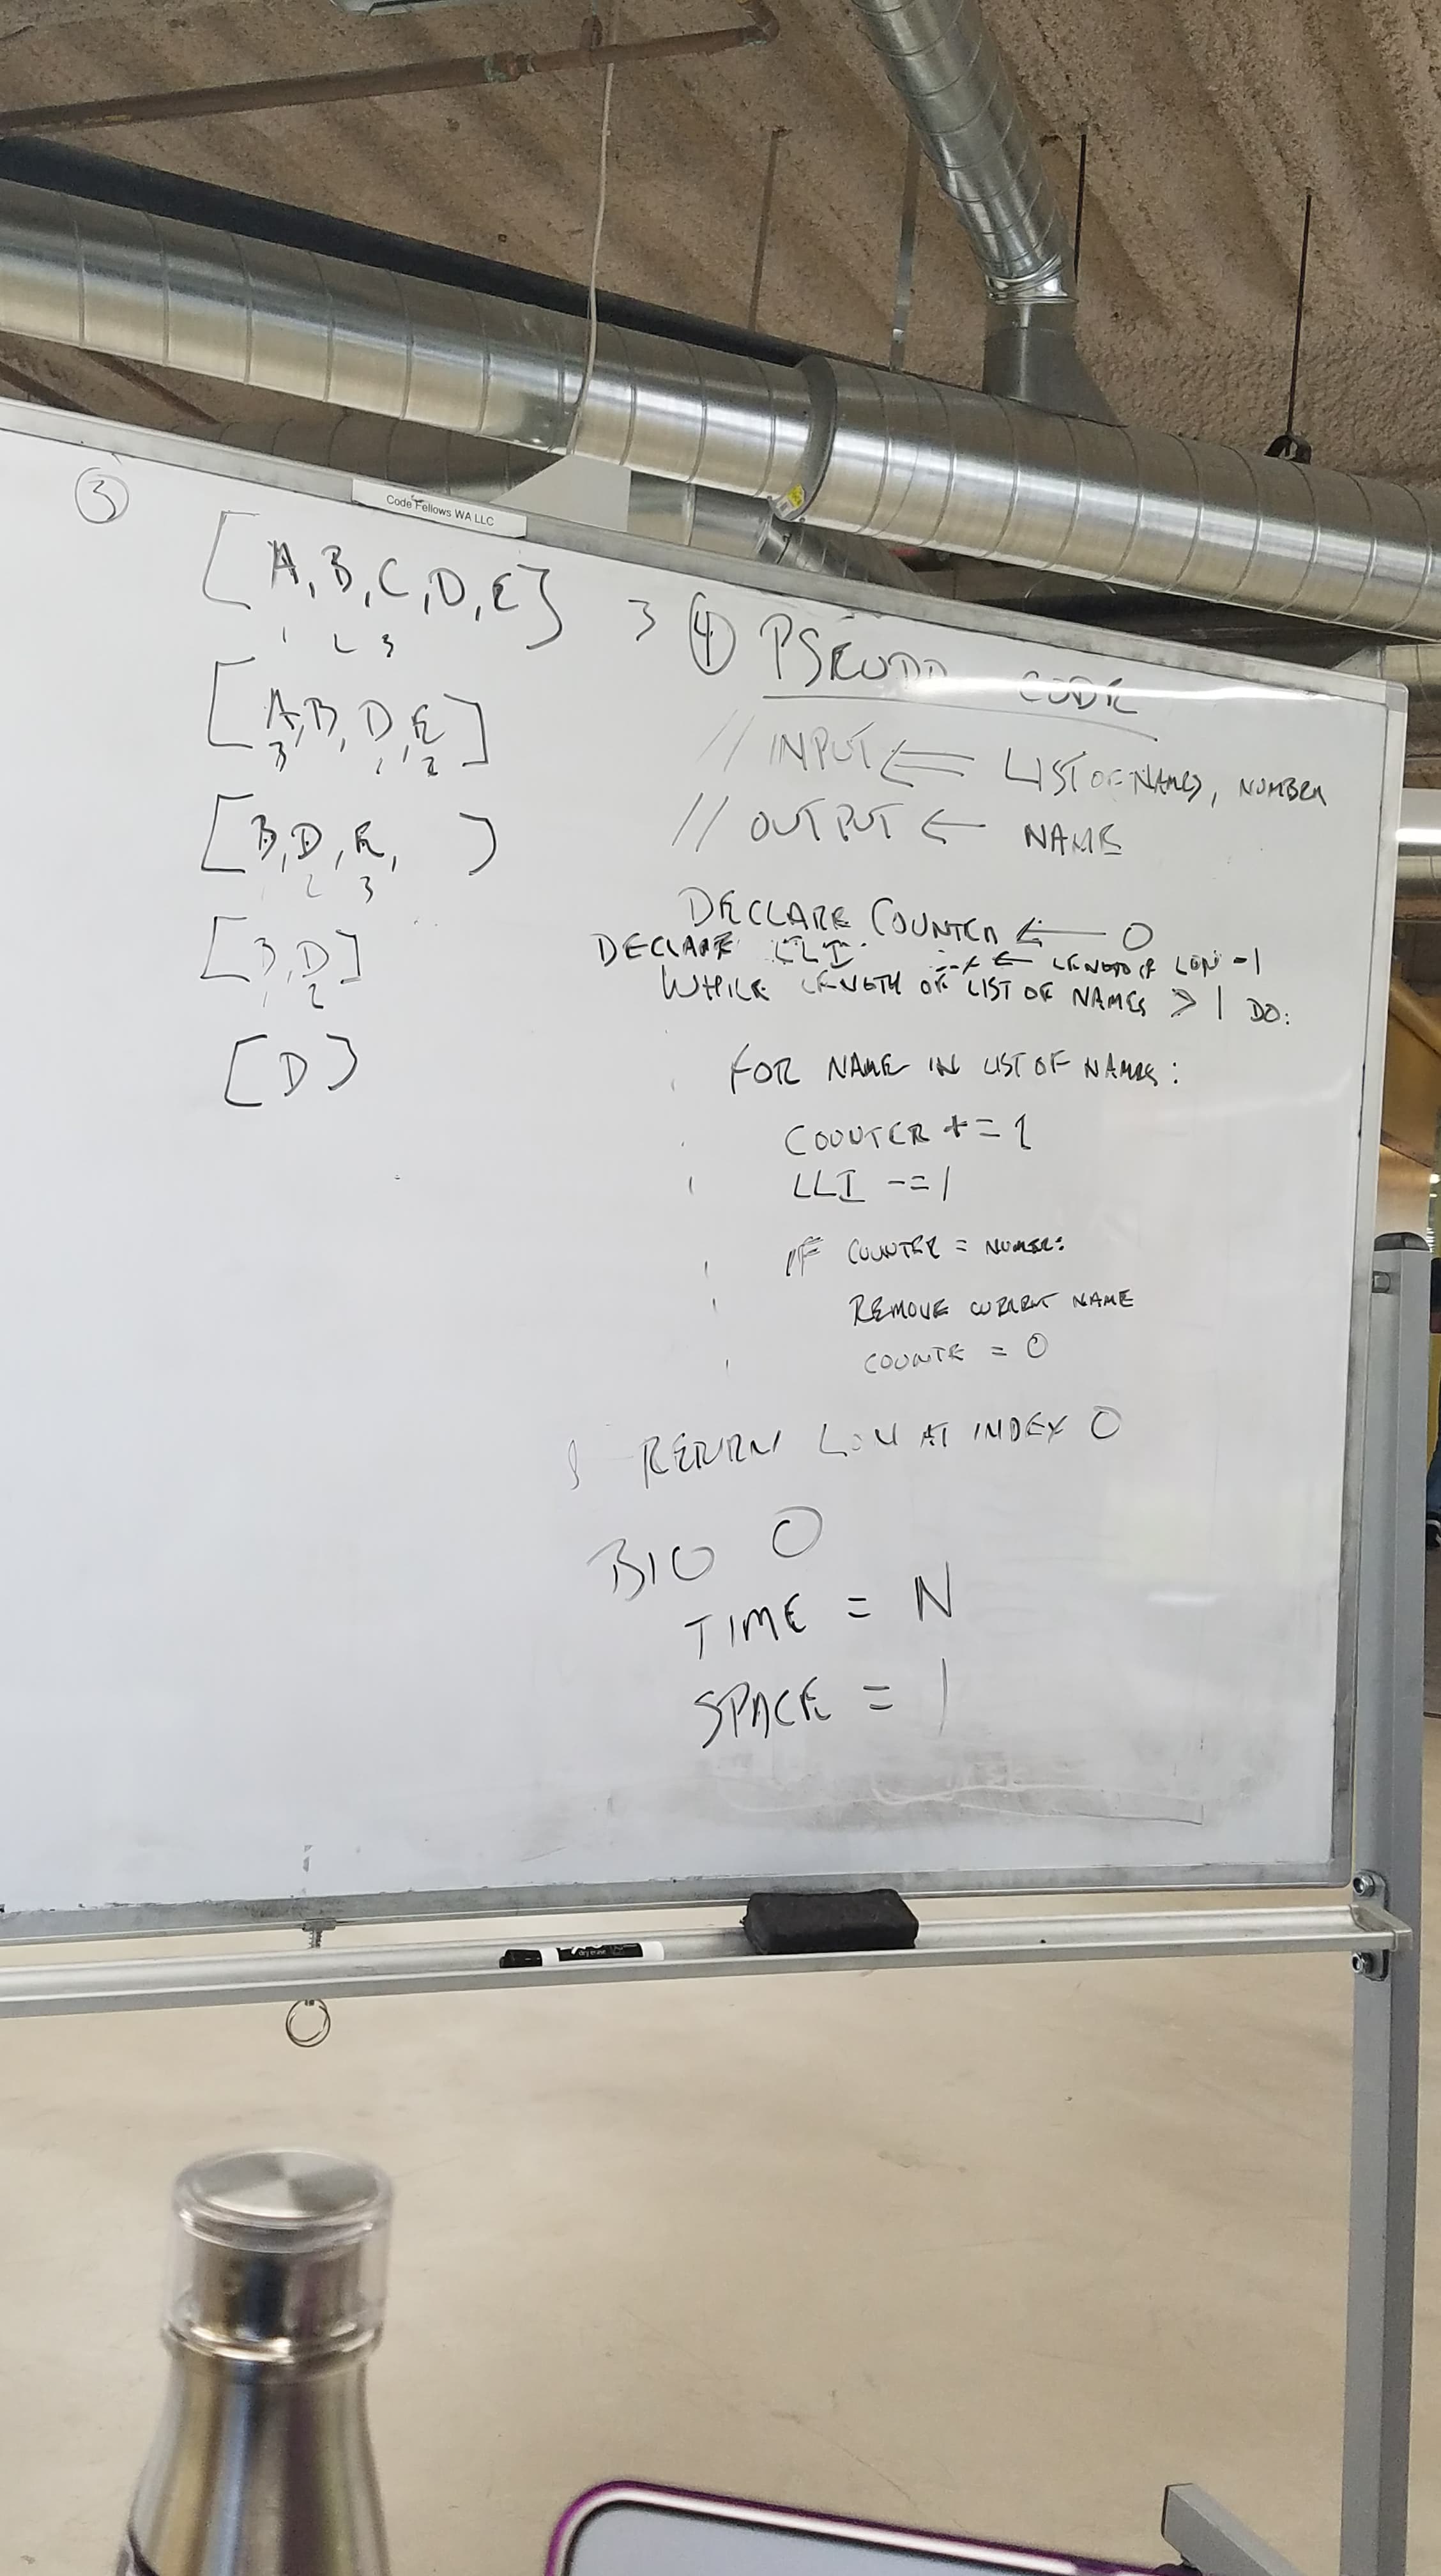 Code Fellows WA LLC
3
[A, B, C, D, E] 3
1 2 3
[A, B, D, E]
3 1 2
[B, D, E, ]
1 2 3
[B, D]
1 2
[D]
4 PSEUDO CODE
// INPUT ⇐ LIST OF NAMES, NUMBER
// OUTPUT ← NAME
DECLARE COUNTER ← 0
DECLARE LLI ← LENGTH OF LON -1
WHILE LENGTH OF LIST OF NAMES > 1 DO:
FOR NAME IN LIST OF NAMES:
COUNTER += 1
LLI -= 1
IF COUNTER = NUMBER:
REMOVE CURRENT NAME
COUNTE = 0
RETURN LON AT INDEX 0
BIG O
TIME = N
SPACE = 1